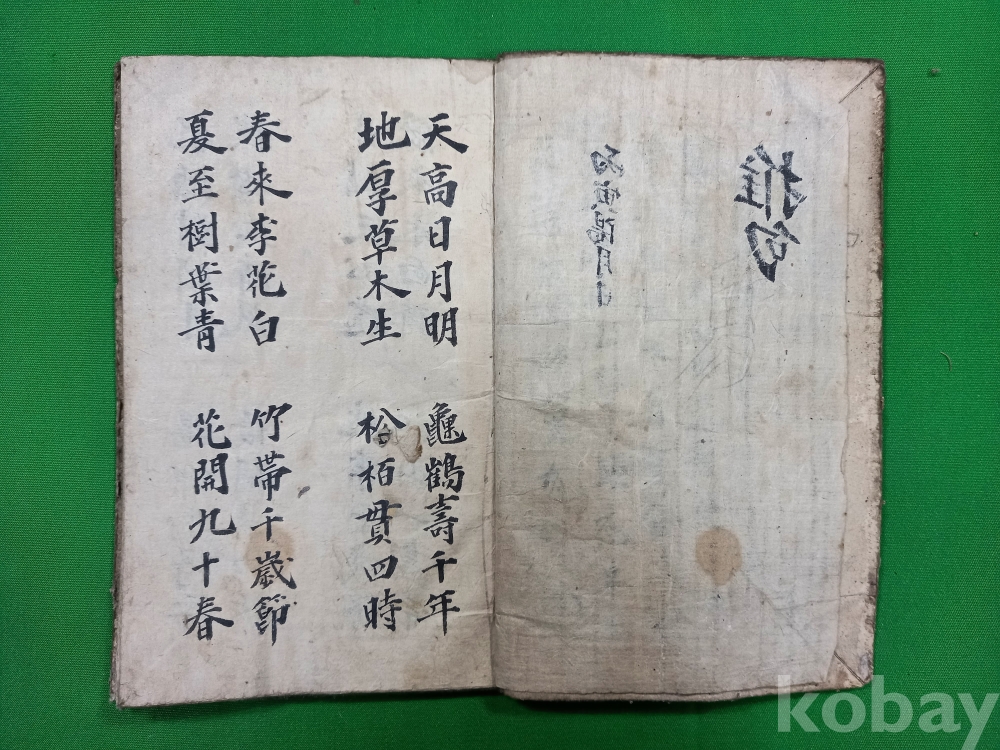 推句
寅陽月日
天高日月明 龜鶴壽千年
地厚草木生 松栢貫四時
春來李花白 竹帶千歲節
夏至樹葉青 花開九十春
kobay